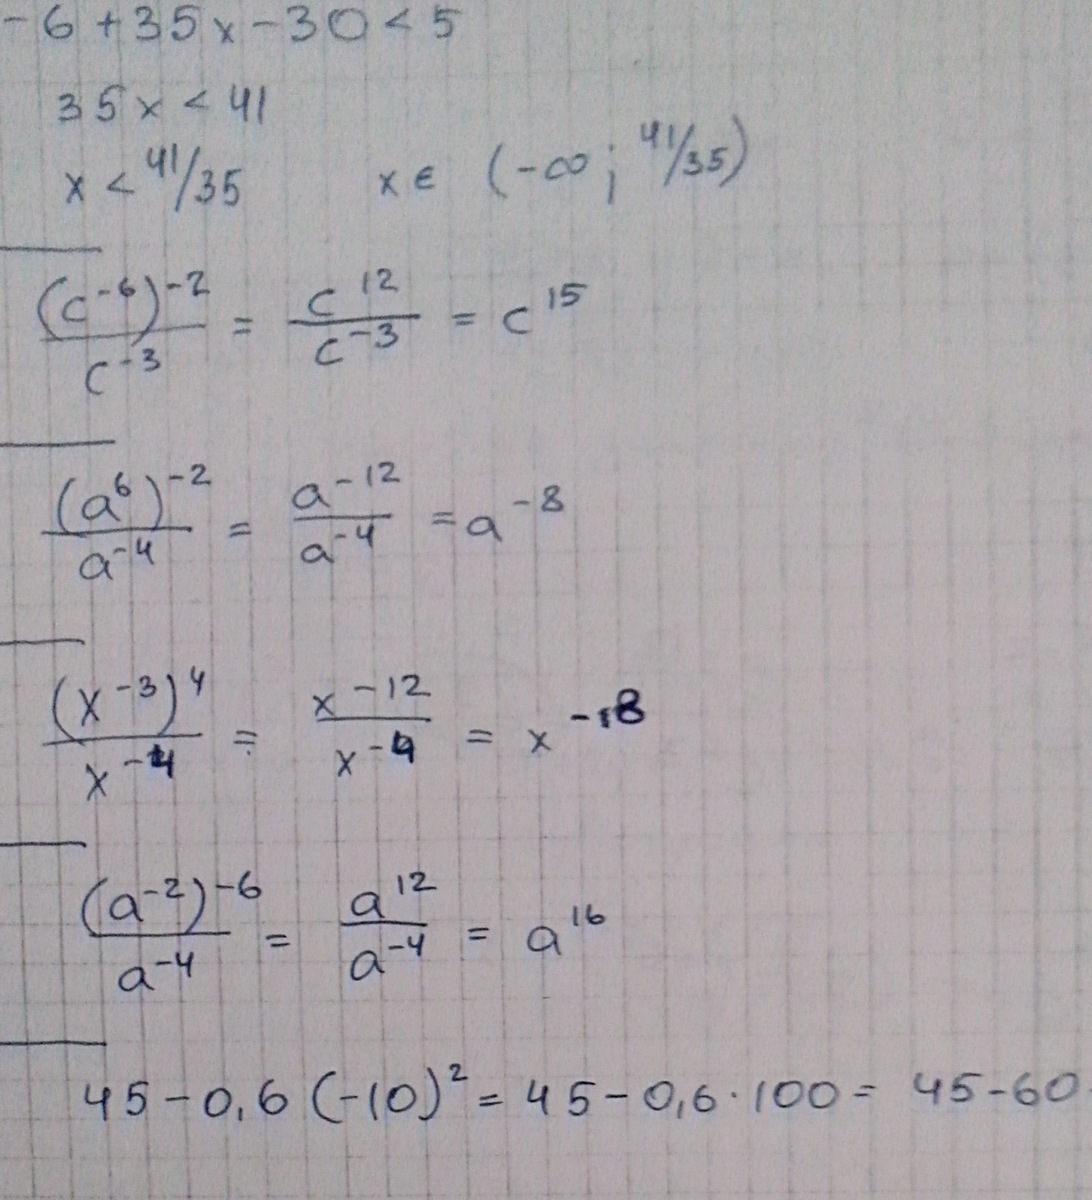 -6+35x-30<5
35x<41
x<41/35 x∈(-∞; 41/35)
(c⁻⁶)⁻²/c⁻³ = c¹²/c⁻³ = c¹⁵
(a⁶)⁻²/a⁻⁴ = a⁻¹²/a⁻⁴ = a⁻⁸
(x⁻³)⁴/x⁻⁴ = x⁻¹²/x⁻⁴ = x⁻¹⁸
(a⁻²)⁻⁶/a⁻⁴ = a¹²/a⁻⁴ = a¹⁶
45-0,6(-10)²=45-0,6·100=45-60